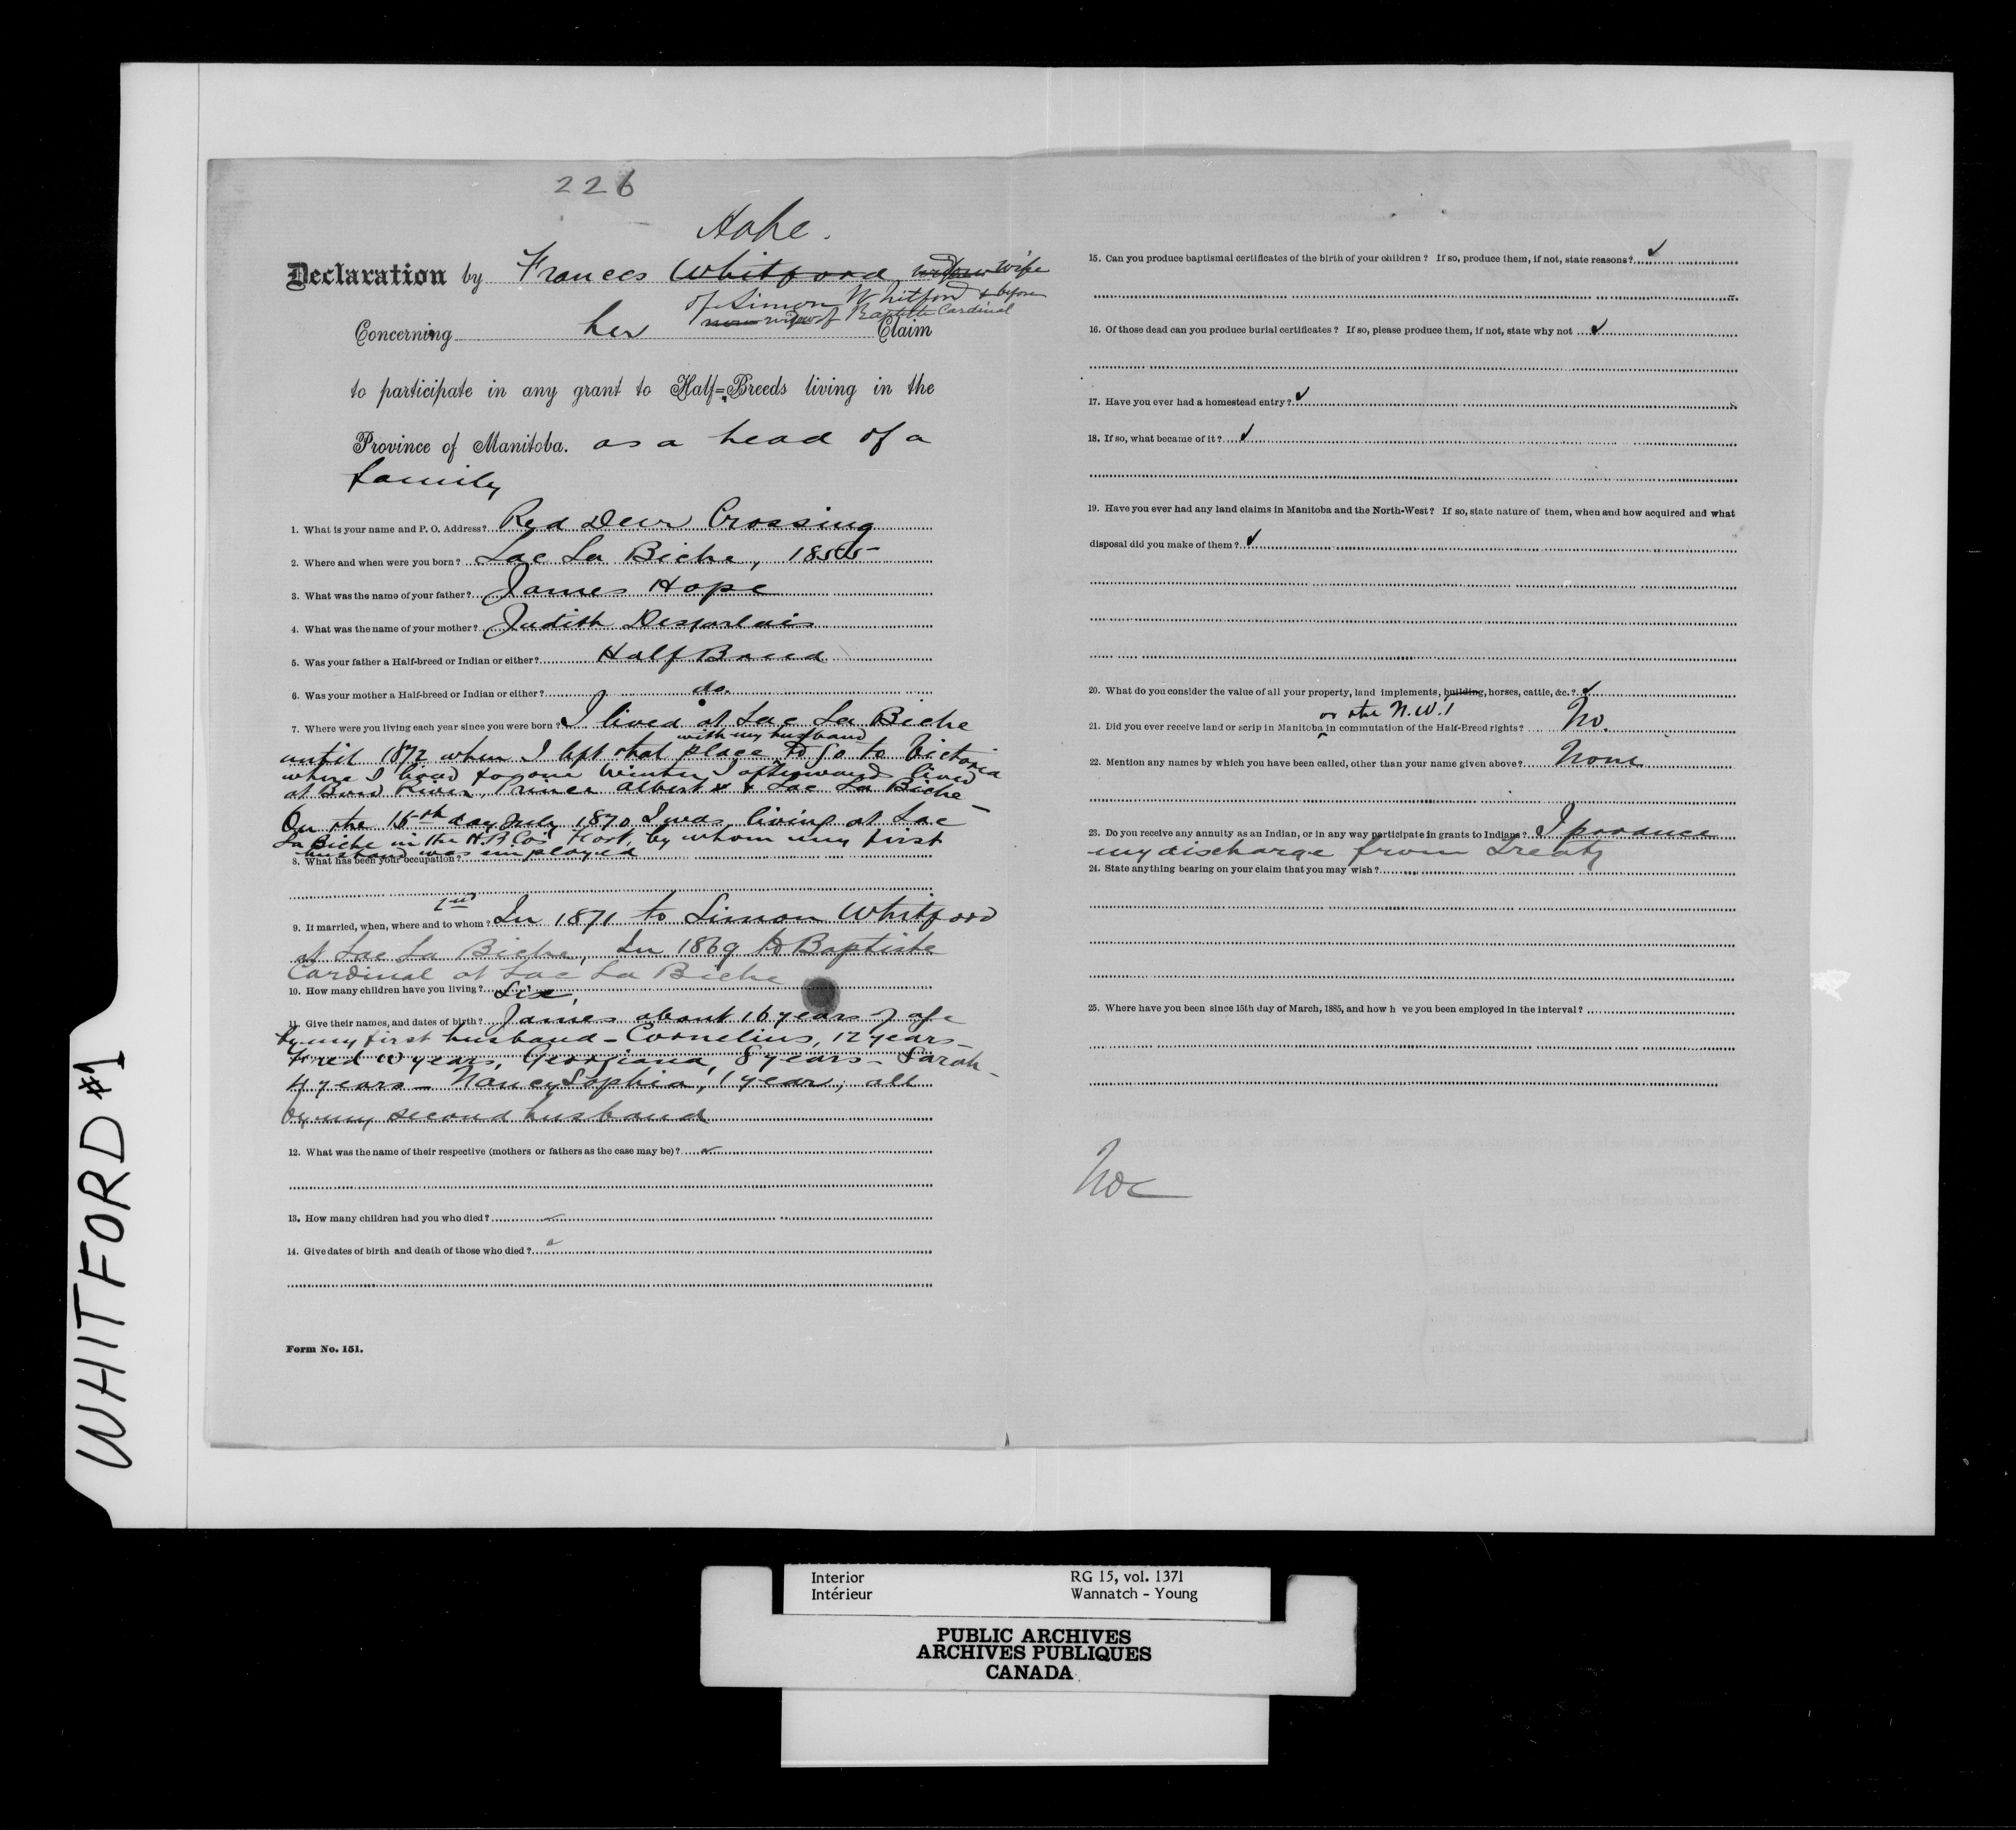 226
Hope.
Declaration by Frances Whitford widow wife
of Simon Whitford & before
now widow of Baptiste Cardinal
Concerning her Claim
to participate in any grant to Half-Breeds living in the
Province of Manitoba. as a head of a
family
1. What is your name and P. O. Address? Red Deer Crossing
2. Where and when were you born? Lac La Biche, 1855
3. What was the name of your father? James Hope
4. What was the name of your mother? Judith Desjarlais
5. Was your father a Half-breed or Indian or either? Half Breed
6. Was your mother a Half-breed or Indian or either? do.
7. Where were you living each year since you were born? I lived at Lac La Biche
with my husband
until 1872 when I left that place to go to Victoria
where I lived for one winter, I afterwards lived
at Bow River, Prince Albert & Lac La Biche -
On the 15th day July 1870 I was living at Lac
La Biche in the H.B.Co's Fort, by whom my first
husband was employed
8. What has been your occupation?
2nd
9. If married, when, where and to whom? In 1871 to Simon Whitford
at Lac La Biche, In 1869 to Baptiste
Cardinal at Lac La Biche
10. How many children have you living? Six,
11. Give their names, and dates of birth? James about 16 years of age
by my first husband - Cornelius, 12 years -
Fred 10 years, Georgiana, 8 years - Sarah -
4 years - Nancy Sophia, 1 year, all
by my second husband
12. What was the name of their respective (mothers or fathers as the case may be)?
13. How many children had you who died?
14. Give dates of birth and death of those who died?
Form No. 151.
15. Can you produce baptismal certificates of the birth of your children? If so, produce them, if not, state reasons?
16. Of those dead can you produce burial certificates? If so, please produce them, if not, state why not
17. Have you ever had a homestead entry?
18. If so, what became of it?
19. Have you ever had any land claims in Manitoba and the North-West? If so, state nature of them, when and how acquired and what
disposal did you make of them?
20. What do you consider the value of all your property, land implements, building, horses, cattle, &c.?
or the N.W.T
21. Did you ever receive land or scrip in Manitoba in commutation of the Half-Breed rights? No.
22. Mention any names by which you have been called, other than your name given above? None
23. Do you receive any annuity as an Indian, or in any way participate in grants to Indians? I produce
my discharge from Treaty
24. State anything bearing on your claim that you may wish?
25. Where have you been since 15th day of March, 1885, and how h ve you been employed in the interval?
WHITFORD #1
Interior RG 15, vol. 1371
Intérieur Wannatch - Young
PUBLIC ARCHIVES
ARCHIVES PUBLIQUES
CANADA